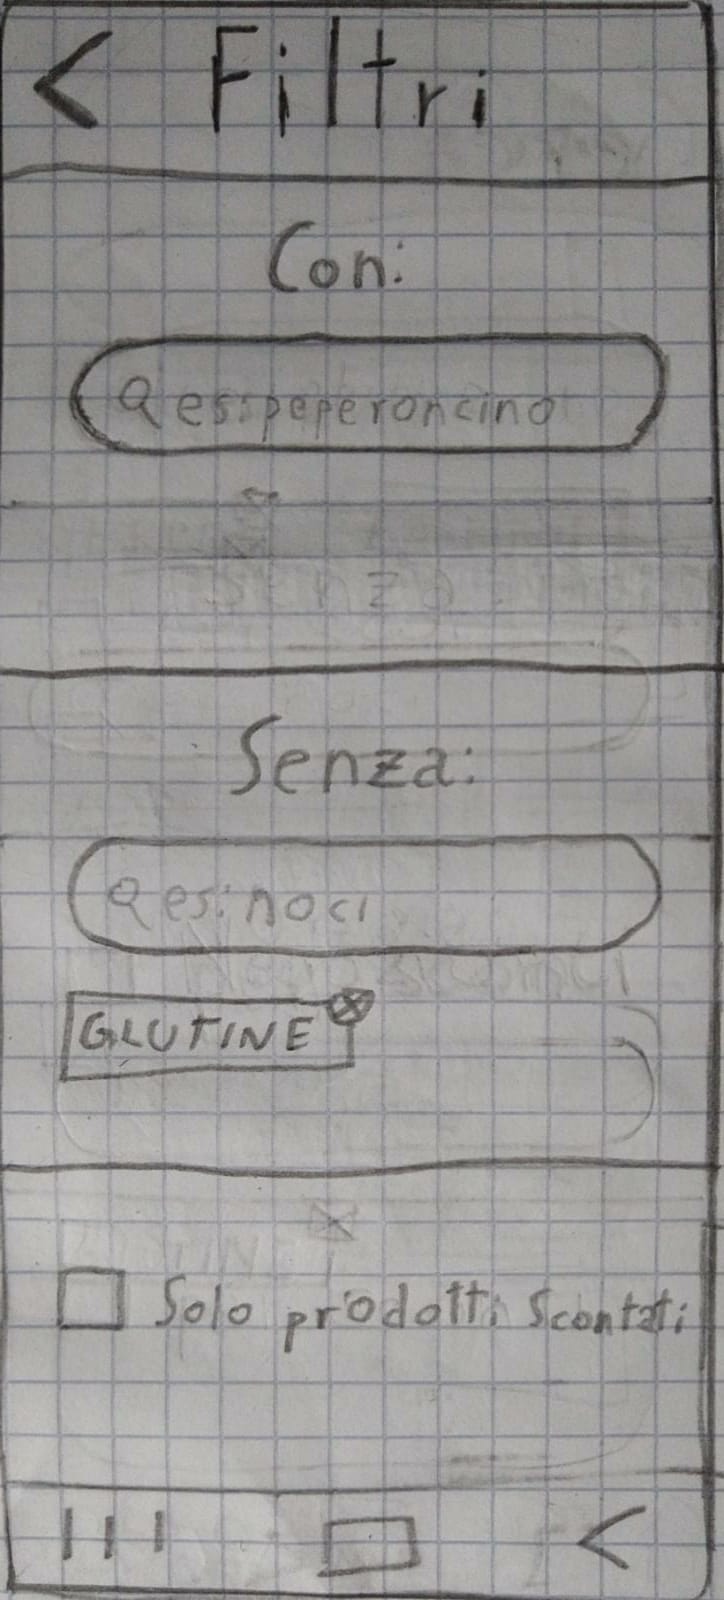 < Filtri
Con:
es: peperoncino
Senza:
es: noci
GLUTINE
Solo prodotti scontati